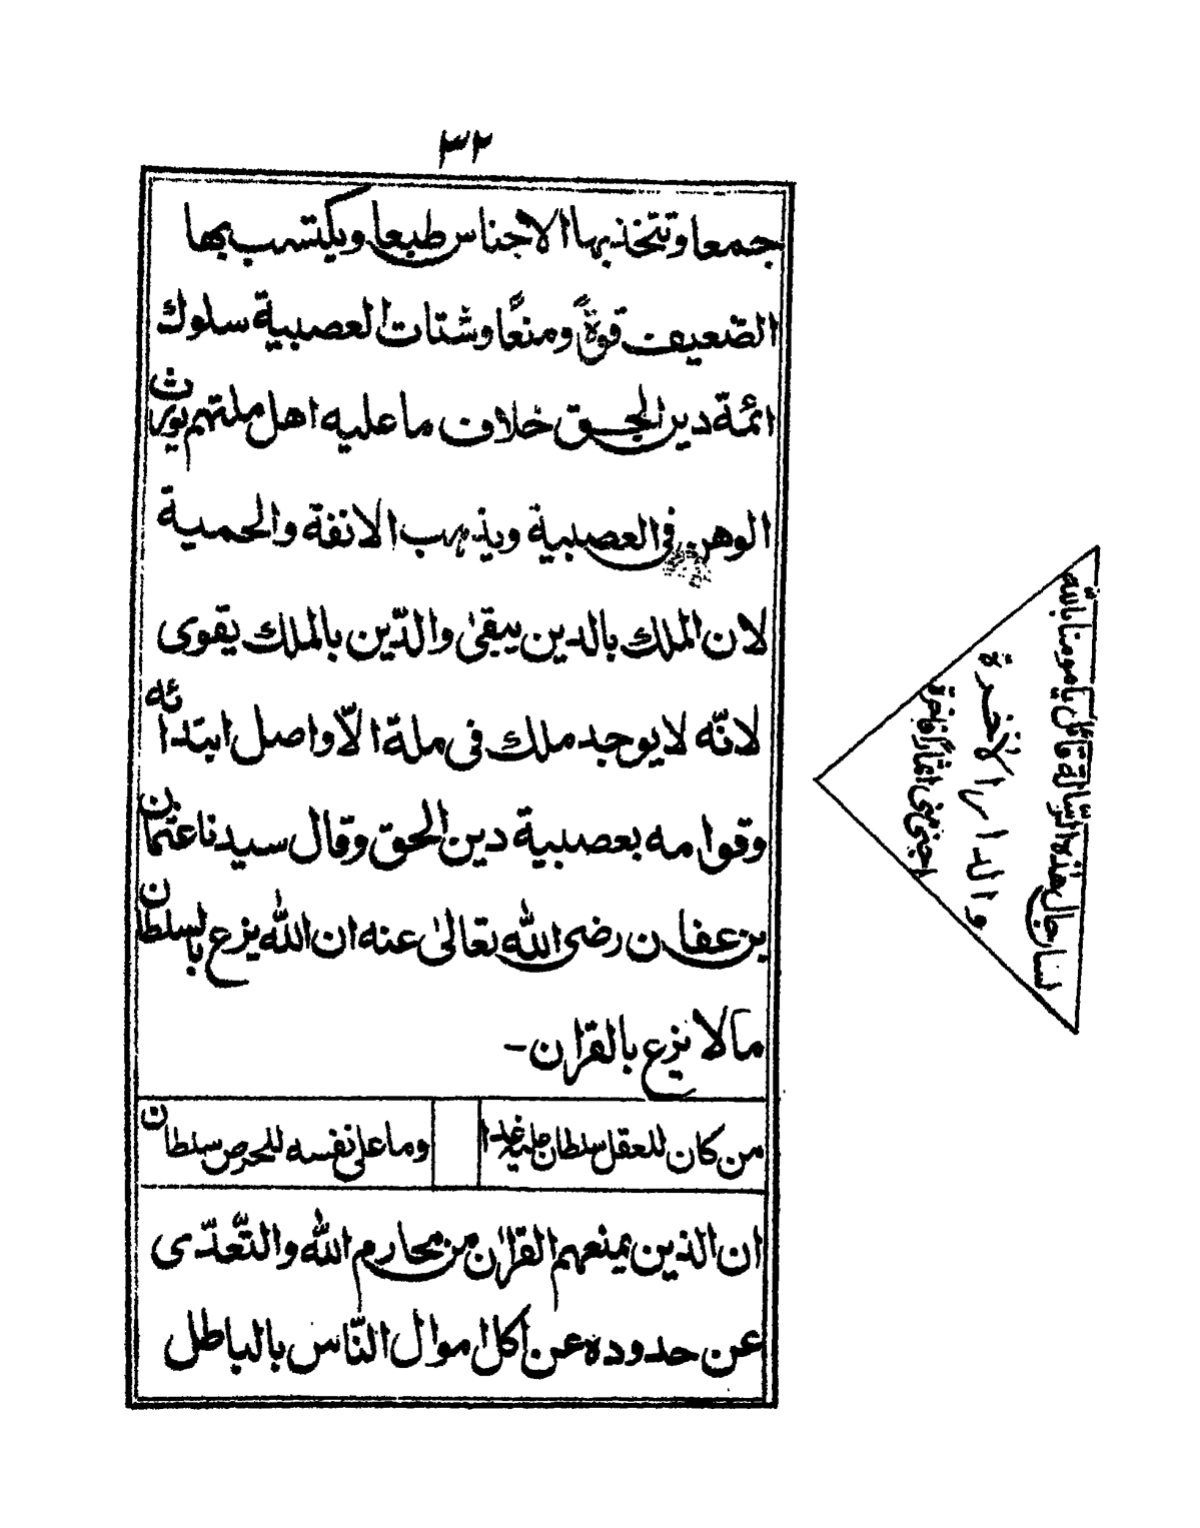 ٣٢
جمعا وتتخذ بها الاجناس طبعا ويكتسب بها
الضعيف قوةً ومنعًا وشتات العصبية سلوك
ائمة دين الحق خلاف ما عليه اهل ملتهم يورث
الوهن فى العصبية ويذهب الانفة والحمية
لان الملك بالدين يبقىٰ والدّين بالملك يقوى
لانّه لا يوجد ملك فى ملة الّا واصل ابتدائه
وقوامه بعصبية دين الحق وقال سيدنا عثمان
بن عفان رضى الله تعالىٰ عنه ان الله يزع بالسلطان
مالا يزع بالقرٰان –
من كان للعقل سلطان عليه غدا
وما على نفسه للحرص سلطان
ان الذين يمنعهم القرٰان من محارم الله والتّعدّى
عن حدوده عن اكل اموال النّاس بالباطل
والدار الاخرة